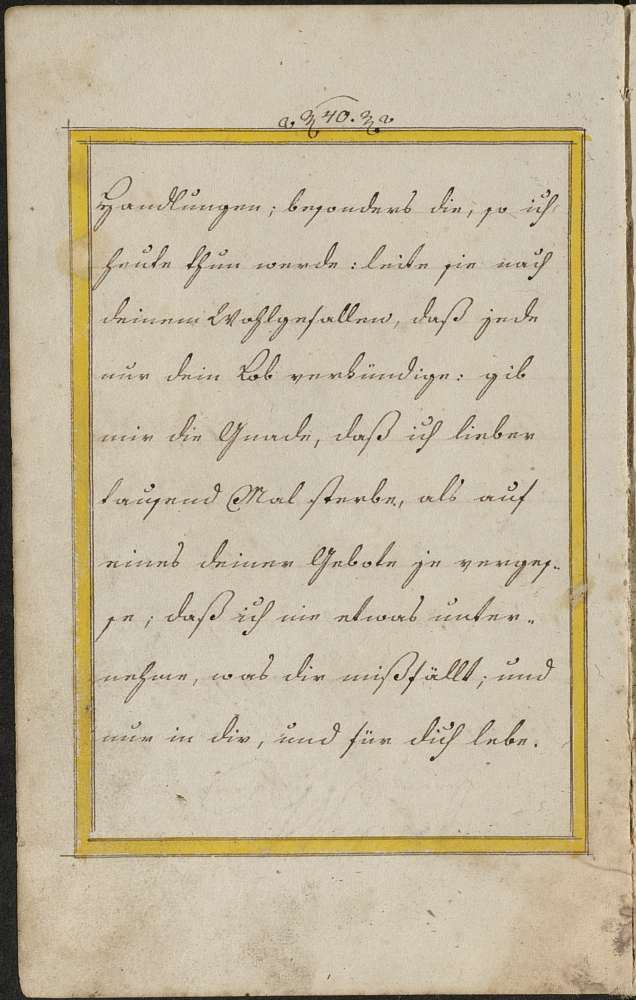 40.
Handlungen; besonders die, so ich
heute thun werde: leite sie nach
deinem Wohlgefallen, daß jede
nur dein Lob verkündige: gib
mir die Gnade, daß ich lieber
tausend Mal sterbe, als auf
eines deiner Gebote je verges-
se; daß ich nie etwas unter-
nehme, was dir mißfällt; und
nur in dir, und für dich lebe.